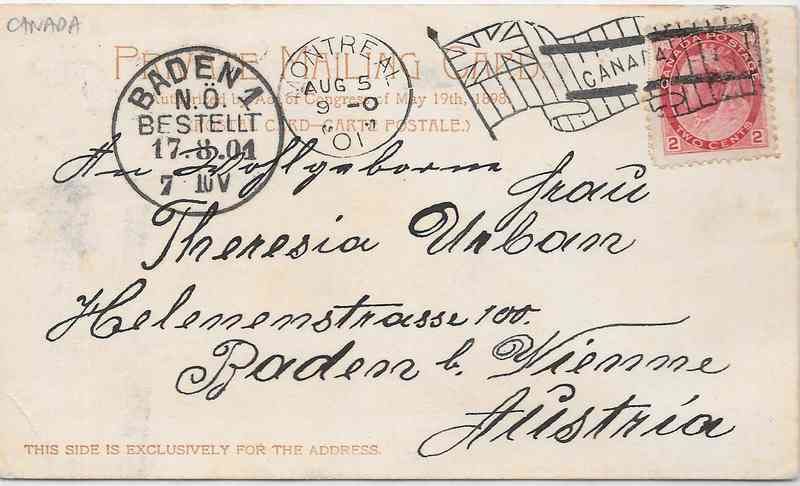 CANADA
PRIVATE MAILING CARD.
Authorized by Act of Congress of May 19th, 1898.
CARD—CARTE POSTALE.)
BADEN 1
N.Ö.
BESTELLT
17.8.01
7
MONTREAL
AUG 5
9-0
"01"
CANADA POSTAGE
2 TWO CENTS 2
An Wohlgeborne Frau
Theresia Urban
Helenenstrasse 100.
Baden b. Vienne
Austria
THIS SIDE IS EXCLUSIVELY FOR THE ADDRESS.